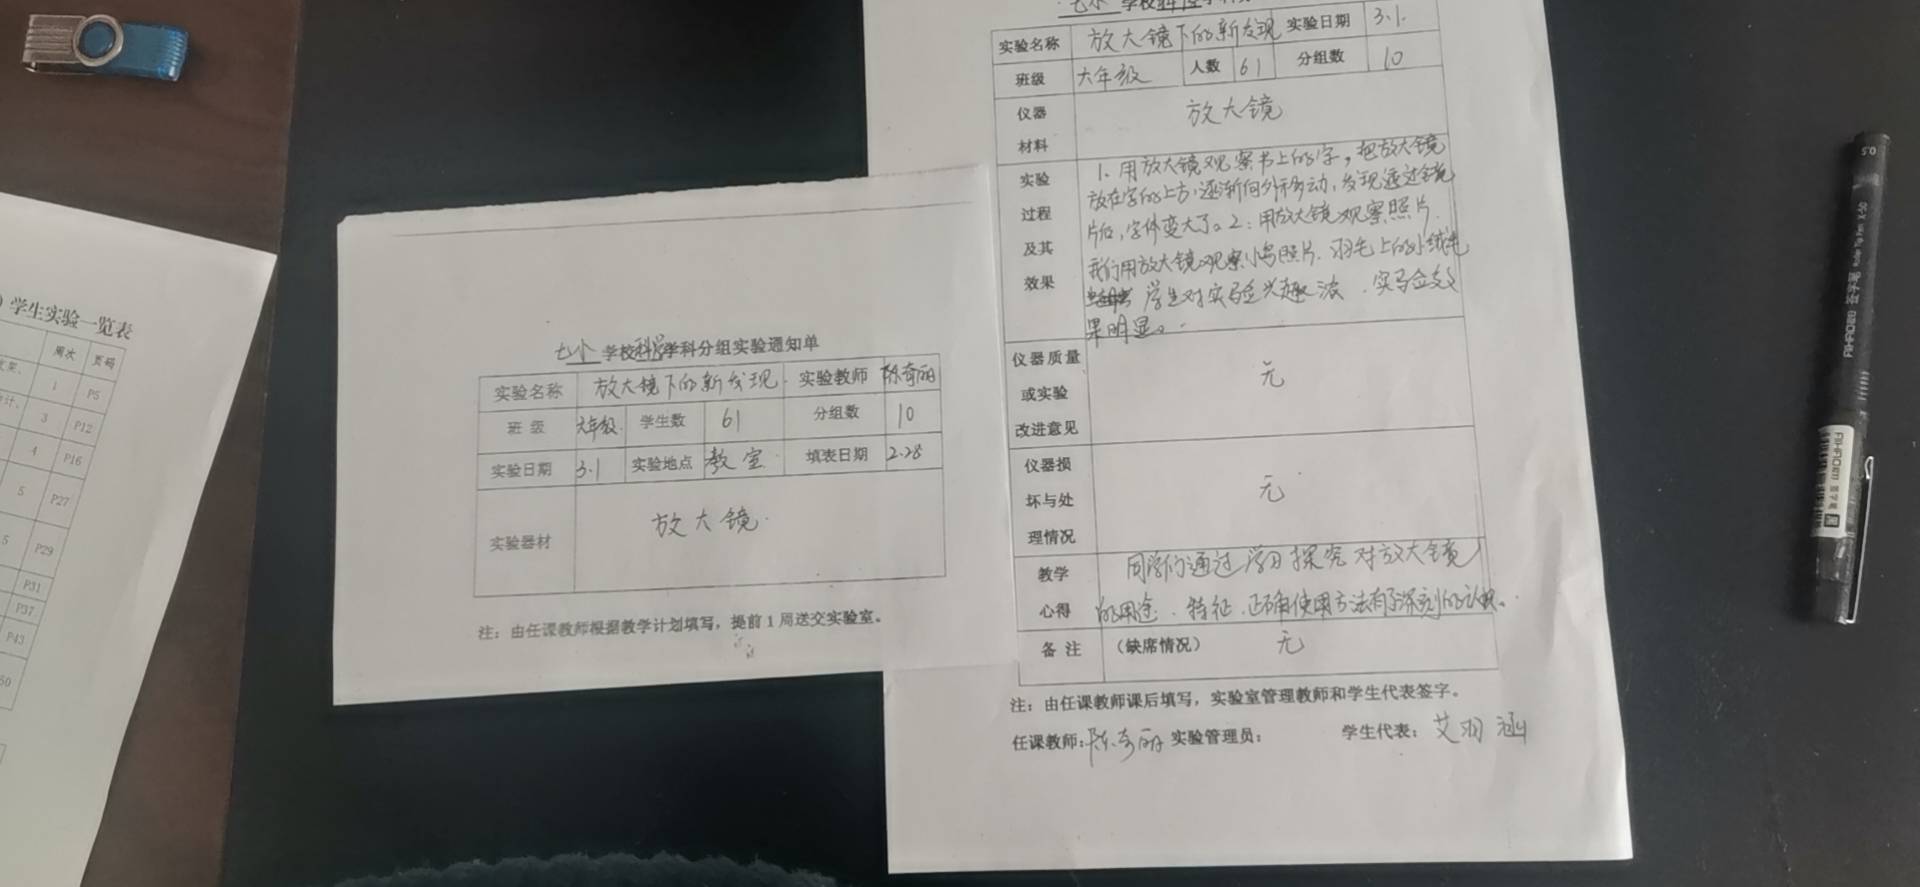 学生实验一览表
周次 页码
1 P5
3 P12
4 P16
5 P27
5 P29
P31
P37
P43
50
七小 学校科学学科分组实验通知单
实验名称 放大镜下的新发现 实验教师 陈奇丽
班 级 六年级 学生数 61 分组数 10
实验日期 3.1 实验地点 教室 填表日期 2.28
实验器材 放大镜
注：由任课教师根据教学计划填写，提前1周送交实验室。
七小 学校科学
实验名称 放大镜下的新发现 实验日期 3.1.
班级 六年级 人数 61 分组数 10
仪器 放大镜
材料
实验 1、用放大镜观察书上的字，把放大镜
过程 放在字的上方，逐渐向外移动，发现透过镜
及其 片后，字体变大了。2：用放大镜观察照片.
效果 我们用放大镜观察小鸟照片.羽毛上的小绒毛
学生对实验兴趣浓，实验效
果明显。
仪器质量
或实验 无
改进意见
仪器损
坏与处 无
理情况
教学 同学们通过学习探究对放大镜
心得 的用途、特征、正确使用方法有了深刻的认识。
备 注 （缺席情况） 无
注：由任课教师课后填写，实验室管理教师和学生代表签字。
任课教师：陈奇丽 实验管理员： 学生代表：艾羽涵
0.5